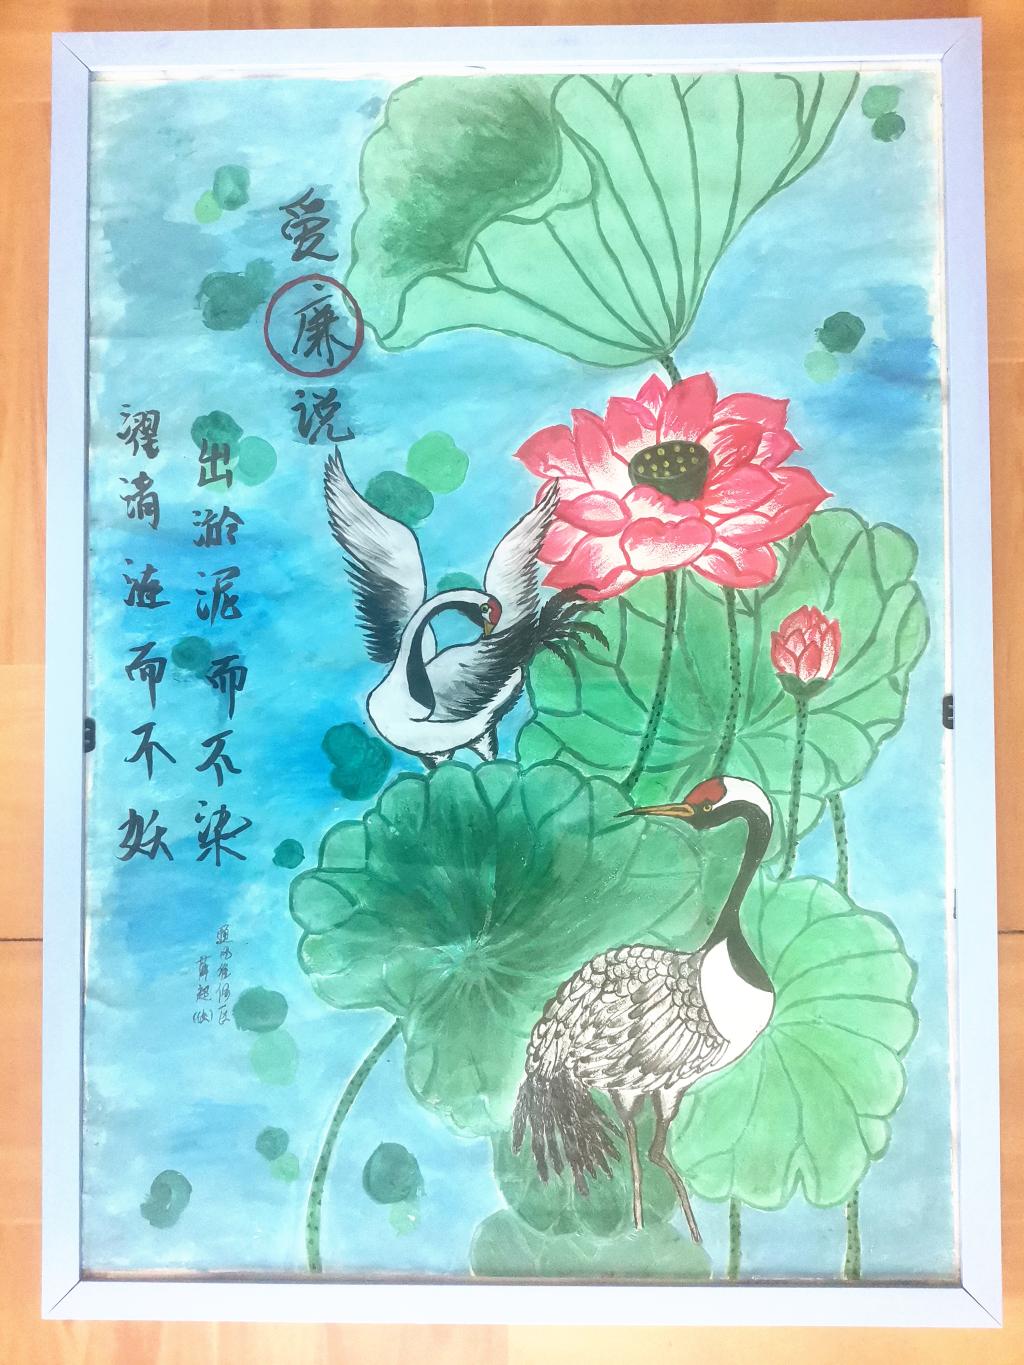 爱廉说
出淤泥而不染
濯清涟而不妖
薛超